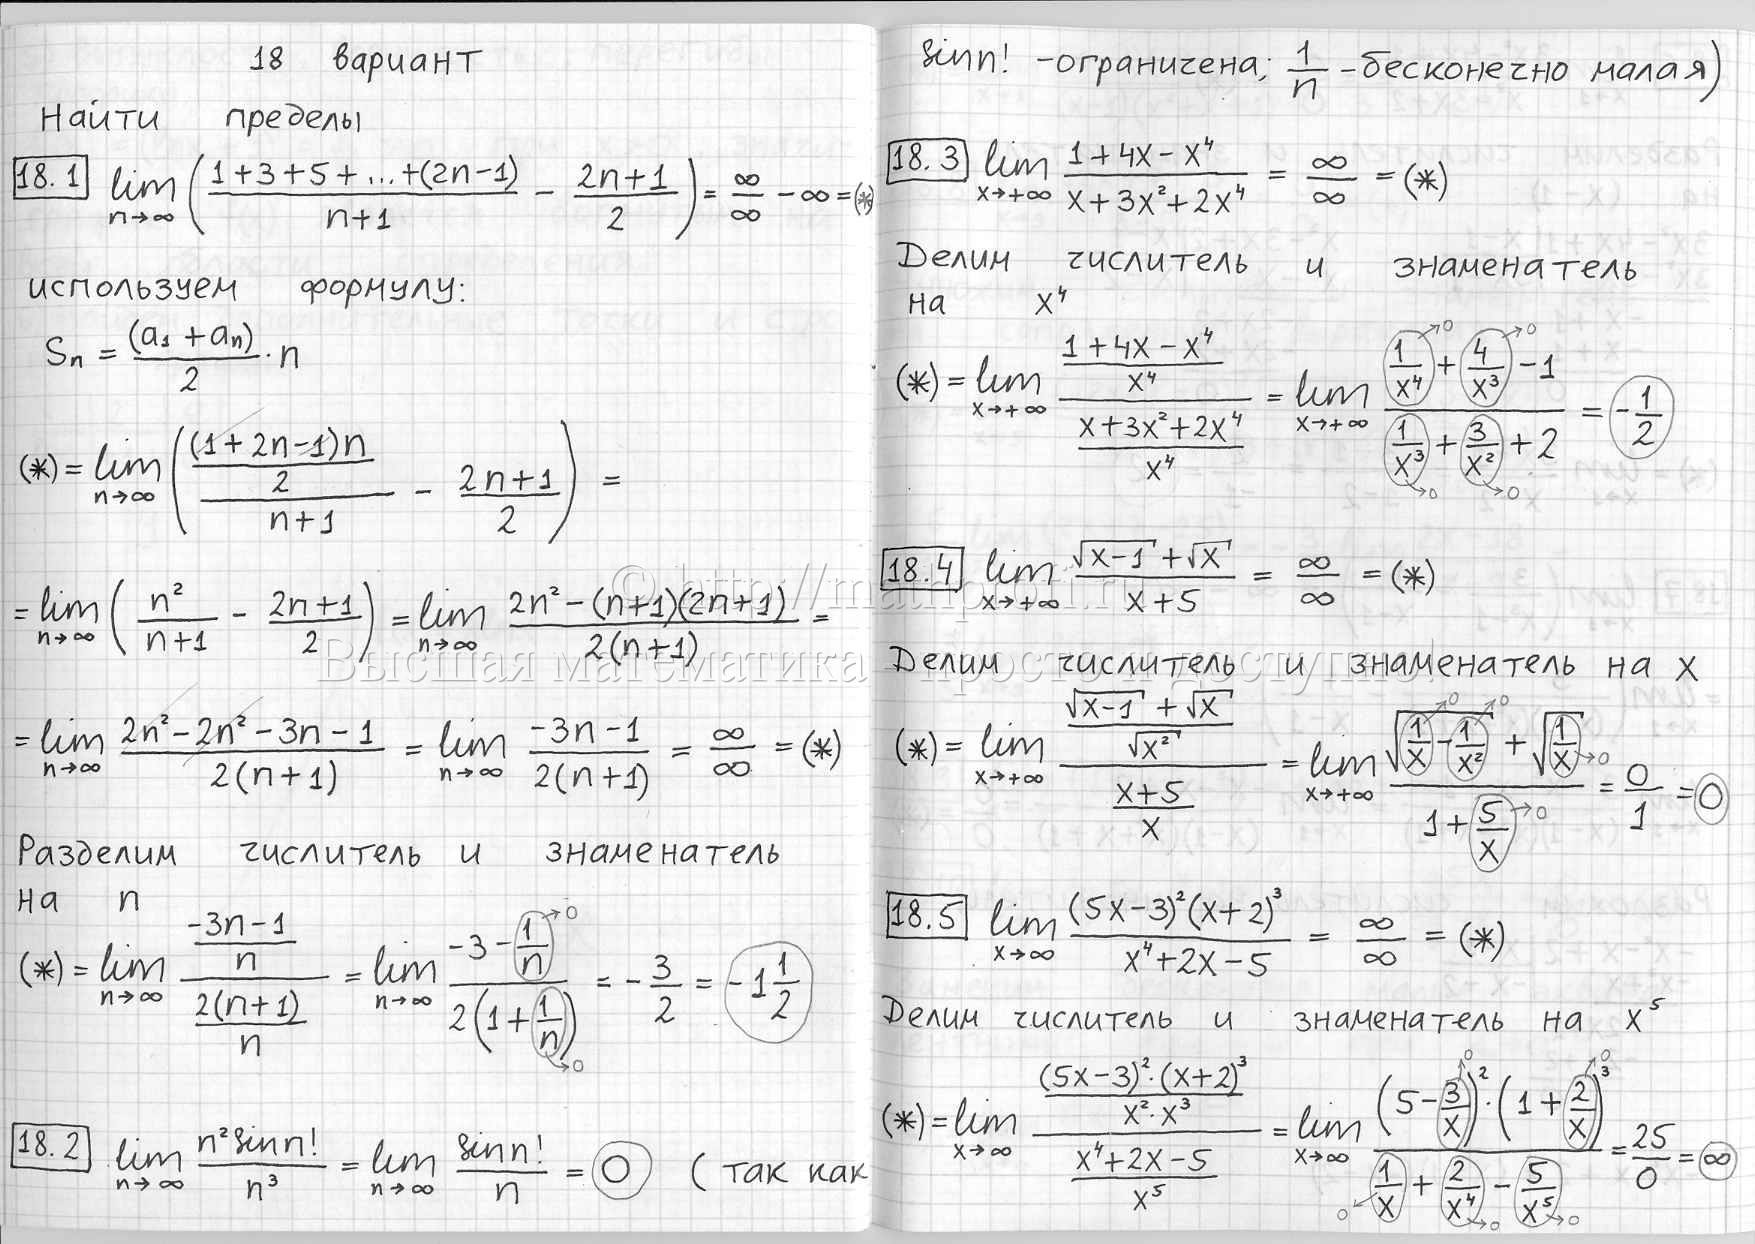 18 вариант
Найти пределы
18.1 lim n→∞ ((1+3+5+...+(2n-1))/(n+1) - (2n+1)/2) = ∞/∞ - ∞ = (*)
используем формулу:
Sn = (a₁ + an)/2 · n
(*) = lim n→∞ (((1+2n-1)n/2)/(n+1) - (2n+1)/2) =
= lim n→∞ (n²/(n+1) - (2n+1)/2) = lim n→∞ (2n²-(n+1)(2n+1))/(2(n+1)) =
= lim n→∞ (2n²-2n²-3n-1)/(2(n+1)) = lim n→∞ (-3n-1)/(2(n+1)) = ∞/∞ = (*)
Разделим числитель и знаменатель
на n
(*) = lim n→∞ ((-3n-1)/n)/((2(n+1))/n) = lim n→∞ (-3-1/n →0)/(2(1+1/n →0)) = -3/2 = -1 1/2
18.2 lim n→∞ (n² sin n!)/n³ = lim n→∞ (sin n!)/n = 0 (так как
sin n! -ограничена; 1/n -бесконечно малая)
18.3 lim x→+∞ (1+4x-x⁴)/(x+3x²+2x⁴) = ∞/∞ = (*)
Делим числитель и знаменатель
на x⁴
(*) = lim x→+∞ ((1+4x-x⁴)/x⁴)/((x+3x²+2x⁴)/x⁴) = lim x→+∞ (1/x⁴ →0 + 4/x³ →0 - 1)/(1/x³ →0 + 3/x² →0 + 2) = -1/2
18.4 lim x→+∞ (√(x-1)+√x)/(x+5) = ∞/∞ = (*)
© http://mathprofi.ru
Высшая математика – просто и доступно!
Делим числитель и знаменатель на x
(*) = lim x→+∞ ((√(x-1)+√x)/√(x²))/((x+5)/x) = lim x→+∞ (√(1/x →0 - 1/x² →0) + √(1/x →0))/(1+5/x →0) = 0/1 = 0
18.5 lim x→∞ ((5x-3)²(x+2)³)/(x⁴+2x-5) = ∞/∞ = (*)
Делим числитель и знаменатель на x⁵
(*) = lim x→∞ ((5x-3)²·(x+2)³/(x²·x³))/((x⁴+2x-5)/x⁵) = lim x→∞ ((5-3/x →0)²·(1+2/x →0)³)/(1/x →0 + 2/x⁴ →0 - 5/x⁵ →0) = 25/0 = ∞